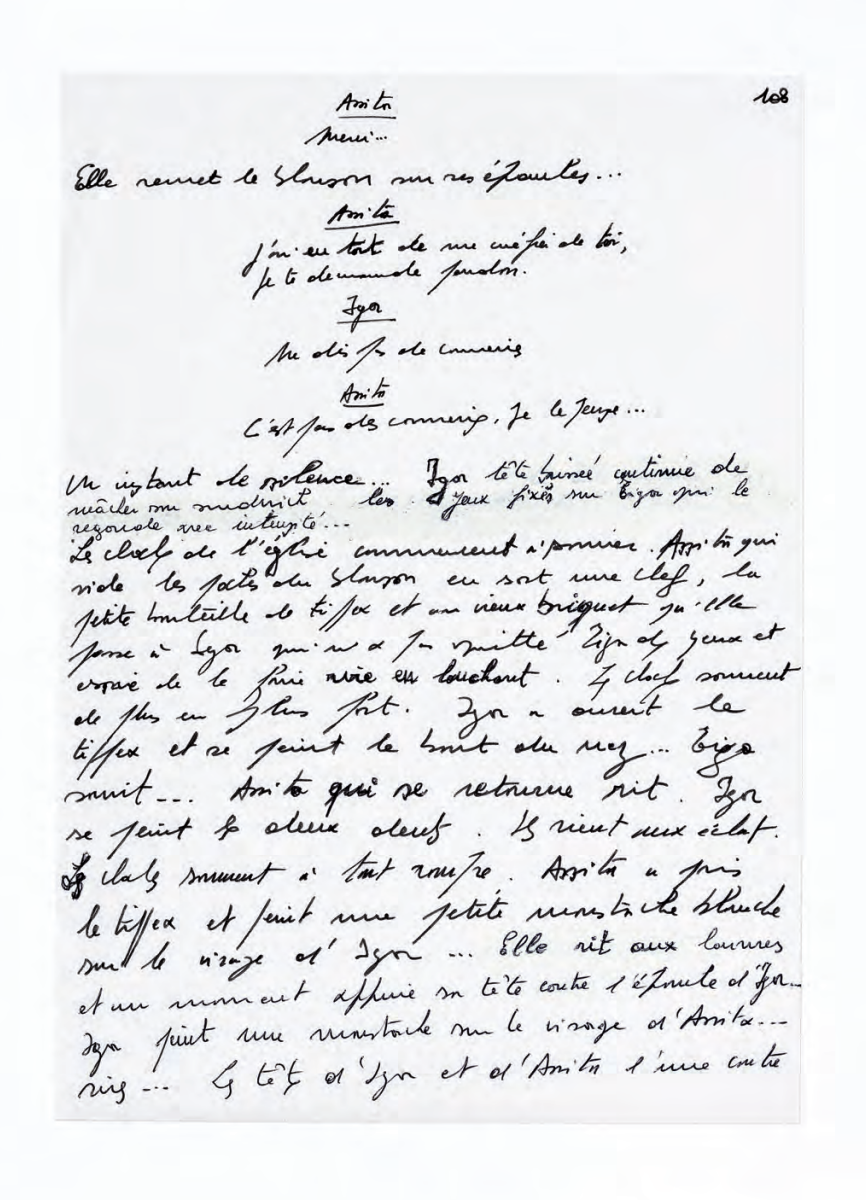 108
Assita
Merci...
Elle remet le blouson sur ses épaules...
Assita
J'ai eu tort de me méfier de toi,
Je te demande pardon.
Igor
Me dis pas de conneries
Assita
C'est pas des conneries, je le pense...
Un instant de silence... Igor tête baissée continue de
mâcher son sandwich les yeux fixés sur Tiga qui le
regarde avec intensité...
Les cloches de l'église commencent à sonner. Assita qui
vide les poches du blouson en sort une clef, la
petite bouteille de tipex et un vieux briquet qu'elle
passe à Igor qui n'a pas quitté Tiga des yeux et
essaie de le faire rire en louchant. Les cloches sonnent
de plus en plus fort. Igor a ouvert le
tippex et se peint le bout du nez... Tiga
sourit... Assita qui se retourne rit. Igor
se peint les deux dents. Ils rient aux éclats.
Les cloches sonnent à tout rompre. Assita a pris
le tippex et peint une petite moustache blanche
sur le visage d'Igor... Elle rit aux larmes
et un moment appuie sa tête contre l'épaule d'Igor...
Igor peint une moustache sur le visage d'Assita...
rires... Les têtes d'Igor et d'Assita l'une contre